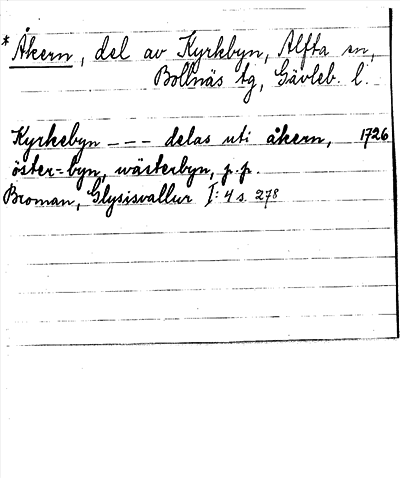 * Åkern, del av Kyrkbyn, Alfta sn,
Bollnäs tg, Gävleb. l.
Kyrkebyn --- delas uti åkern, 1726
öster-byn, wästerbyn, p. p.
Broman, Glysisvallur I: 4 s. 278